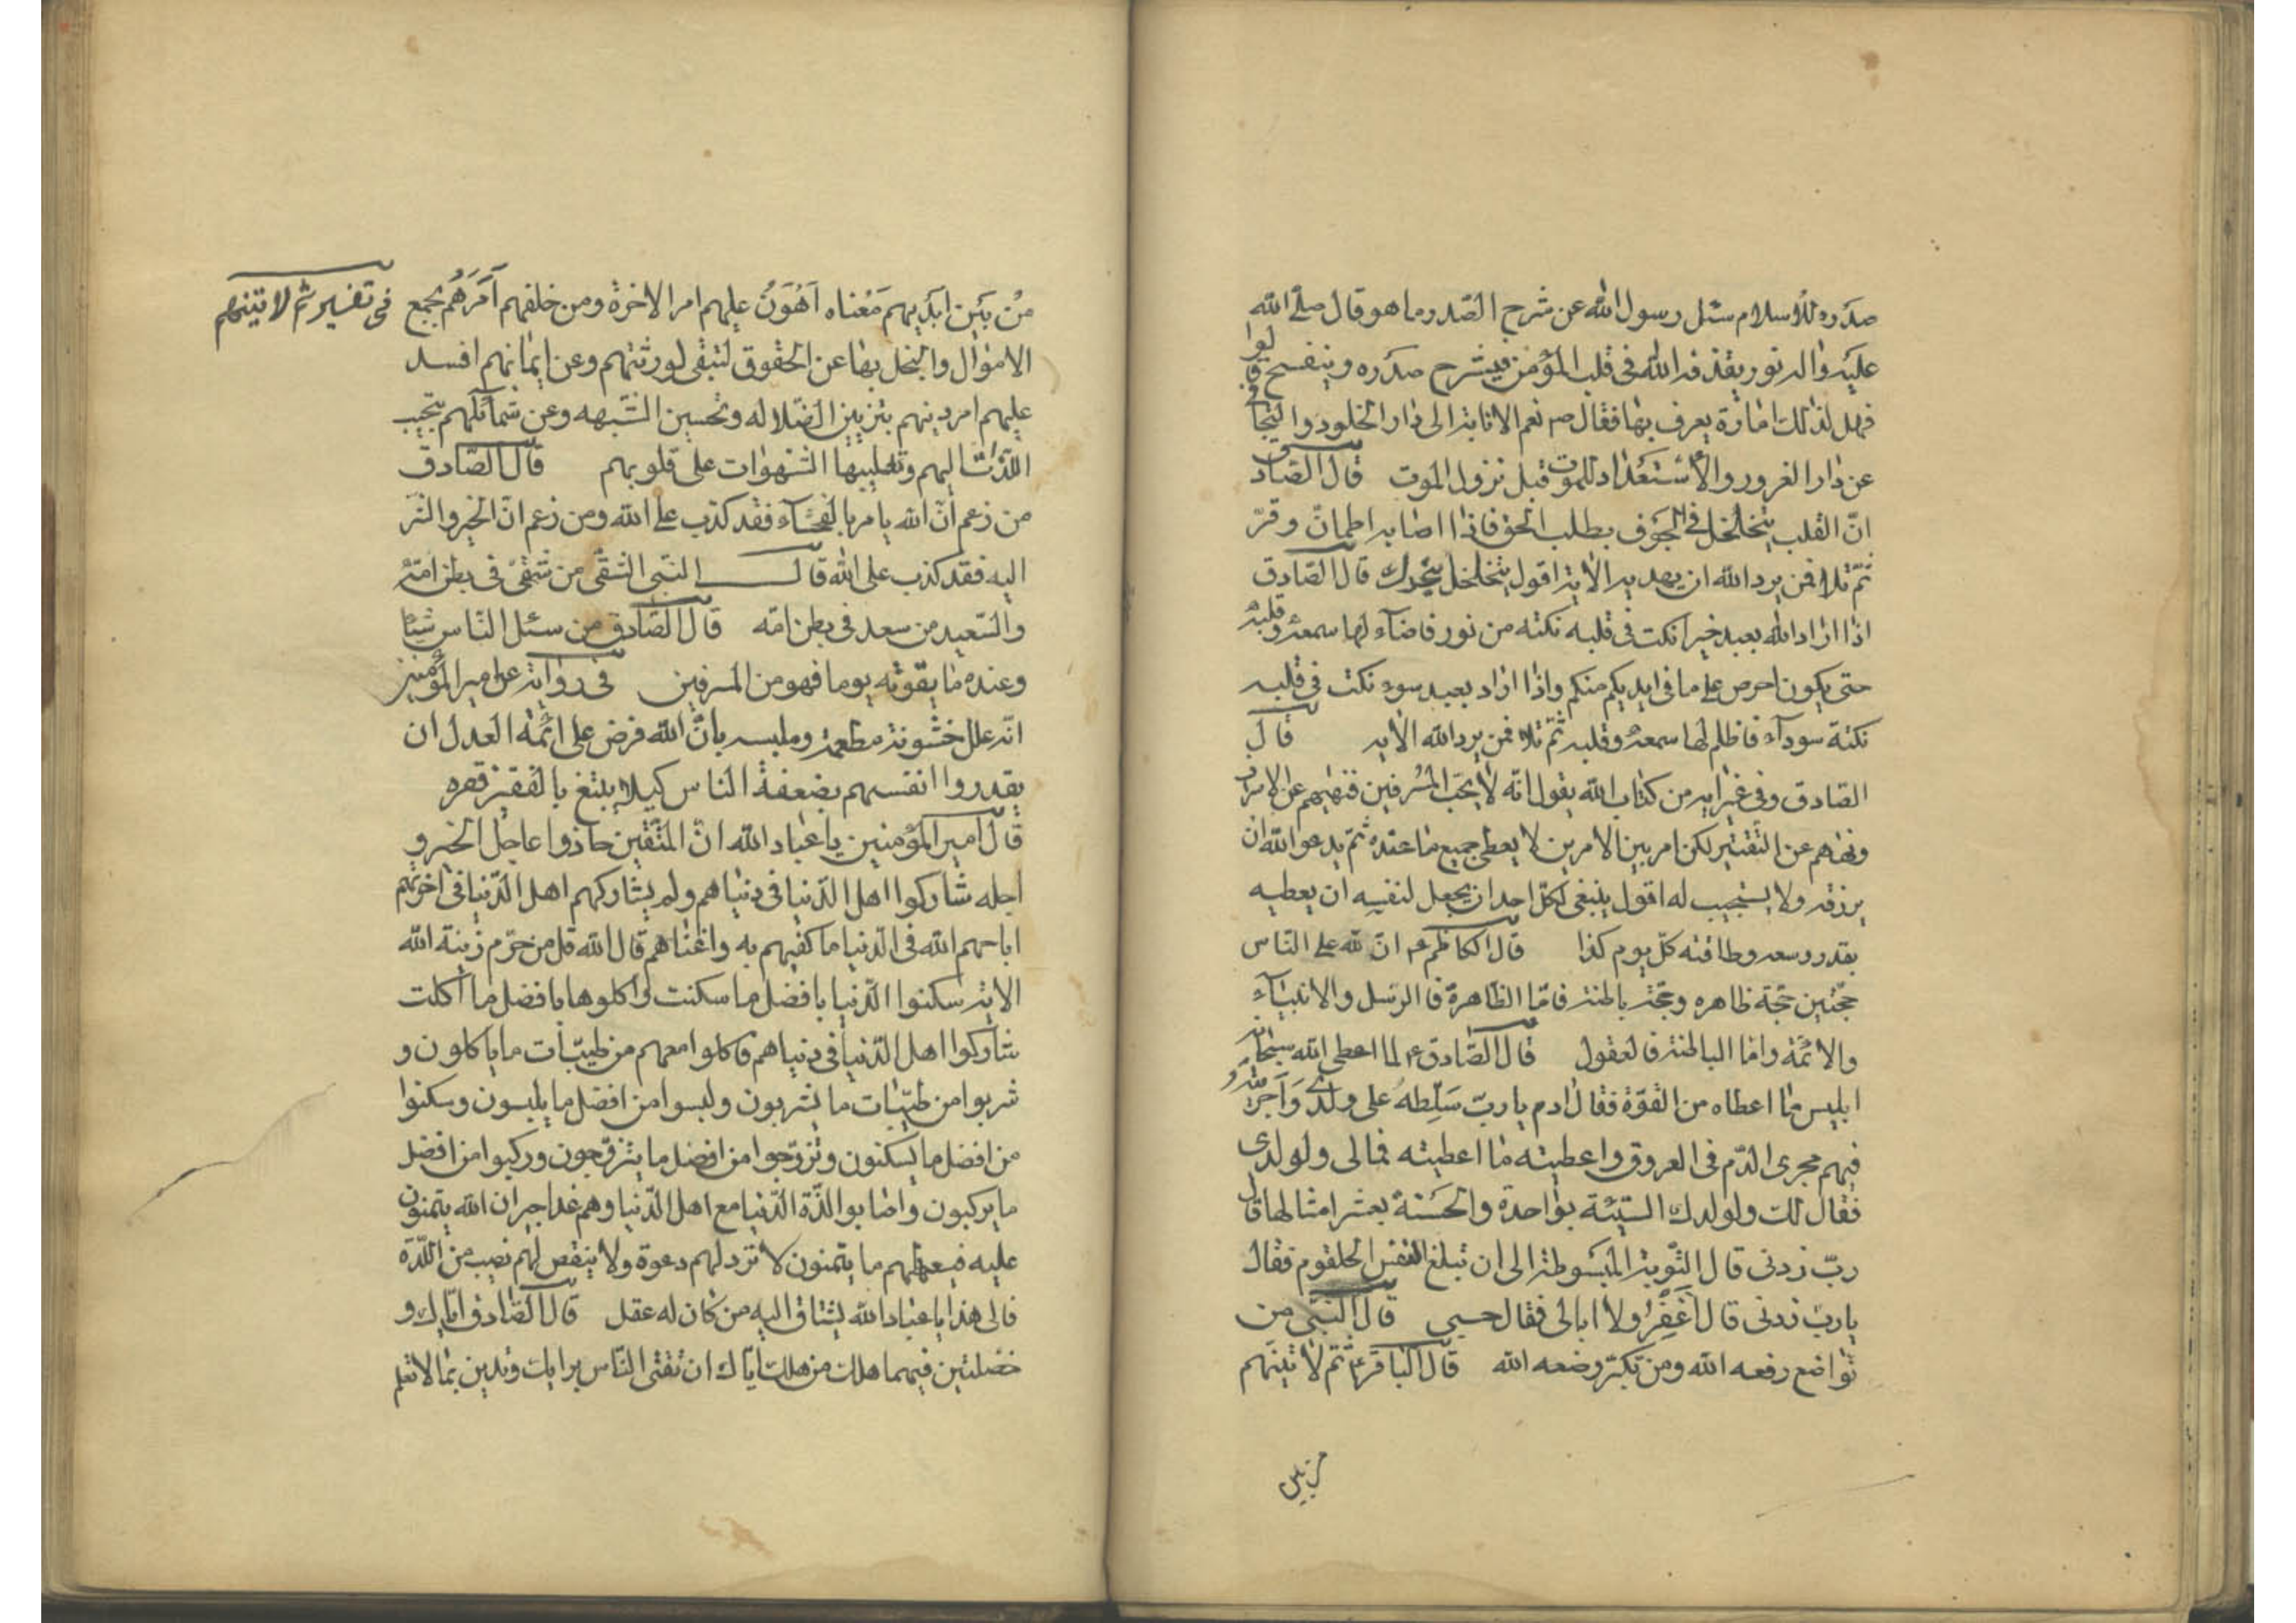 صدره للاسلام سئل رسول الله عن شرح الصّدر ما هو قال صلّے الله
عليه واله نور يقذفه الله فى قلب المؤمن فيشرح صدره وينفسح قالوا
فهل لذلك امارة يعرف بها فقال ص نعم الانابة الى دار الخلود والتجافى
عن دار الغرور والاستعداد للموت قبل نزول الموت قال الصّادق
انّ القلب يتخلخل فى الجوف يطلب الحق فاذا اصابه اطمأنّ وقرّ
ثمّ تلا فمن يرد الله ان يهديه الاية اقول يتخلخل يتحرك قال الصّادق
اذا اراد الله بعبد خيرا نكت فى قلبه نكتة من نور فاضآء لها سمعه وقلبه
حتى يكون احرص على ما فى ايديكم منكم واذا اراد بعبد سوء نكت فى قلبه
نكتة سودآء فاظلم لها سمعه وقلبه ثمّ تلا فمن يرد الله الايه قال
الصّادق وفى غير اية من كتاب الله يقول انّه لا يحبّ المسرفين فنهيهم عن الاسراف
ونهاهم عن التّقتير لكن امر بين الامرين لا يعطى جميع ما عنده ثمّ يدعو الله ان
يرزقه ولا يستجيب له اقول ينبغى لكلّ احد ان يجعل لنفسه ان يعطيه
بقدر وسعه وطاقته كلّ يوم كذا قال الكاظم ع انّ لله على النّاس
حجّتين حجّة ظاهره وحجّة باطنة فامّا الظّاهرة فالرّسل والانبيآء
والائمّة وامّا الباطنة فالعقول قال الصّادق ع لما اعطى الله سبحانه
ابليس ما اعطاه من القوّة فقال ادم يا ربّ سلّطته على ولدى واجريته
فيهم مجرى الدّم فى العروق واعطيته ما اعطيته فما لى ولولدى
فقال لك ولولدك السّيّئة بواحدة والحسنة بعشر امثالها قال
ربّ زدنى قال التّوبة المبسوطة الى ان تبلغ النفس الحلقوم فقال
يا ربّ زدنى قال اغفر ولا ابالى فقال حسبى قال النّبىّ من
تواضع رفعه الله ومن تكبّر وضعه الله قال الباقر ع ثمّ لاتينّهم
من بين
من بين ايديهم معناه اهون عليهم امر الاخرة ومن خلفهم آمرهم بجمع
فى تفسير ثم لاتينهم
الاموال والبخل بها عن الحقوق لتبقى لورثتهم وعن ايمانهم افسد
عليهم امر دينهم بتزيين الضّلاله وتحسين الشّبهه وعن شمآئلهم بتحبيب
اللّذّات اليهم وتغليبها الشّهوات على قلوبهم قال الصّادق
من زعم انّ الله يامر بالفحشآء فقد كذب على الله ومن زعم انّ الخير والشّر
اليه فقد كذب على الله قال النّبى الشّقى من شقى فى بطن امّه
والسّعيد من سعد فى بطن امّه قال الصّادق من سئل النّاس شيئا
وعنده ما يقوته يوما فهو من المسرفين فى رواية عن امير المؤمنين
انّه علل خشونة مطعمه وملبسه بانّ الله فرض على ائمّة العدل ان
يقدروا انفسهم بضعفة النّاس كيلا يبتغ بالفقير فقره
قال امير المؤمنين يا عباد الله انّ المتّقين حاذوا عاجل الخير و
اجله شاركوا اهل الدّنيا فى دنياهم ولم يشاركهم اهل الدّنيا فى اخرتهم
اباحهم الله فى الدّنيا ما كفيهم به واغناهم قال الله قل من حرّم زينة الله
الاية سكنوا الدّنيا بافضل ما سكنت واكلوها بافضل ما اكلت
شاركوا اهل الدّنيا فى دنياهم فاكلوا معهم من طيّبات ما ياكلون و
شربوا من طيّبات ما يشربون ولبسوا من افضل ما يلبسون وسكنوا
من افضل ما يسكنون وتزوّجوا من افضل ما يتزوّجون وركبوا من افضل
ما يركبون واصابوا لذّة الدّنيا مع اهل الدّنيا وهم غدا جيران الله يتمنّون
عليه فيعطيهم ما يتمنون لا تردّ لهم دعوة ولا ينقص لهم نصيب من اللّذّة
فالى هذا يا عباد الله يشتاق اليه من كان له عقل قال الصّادق ايّاك و
خصلتين فيهما هلك من هلك ايّاك ان تفتى النّاس برايك وتدين بما لا تعلم